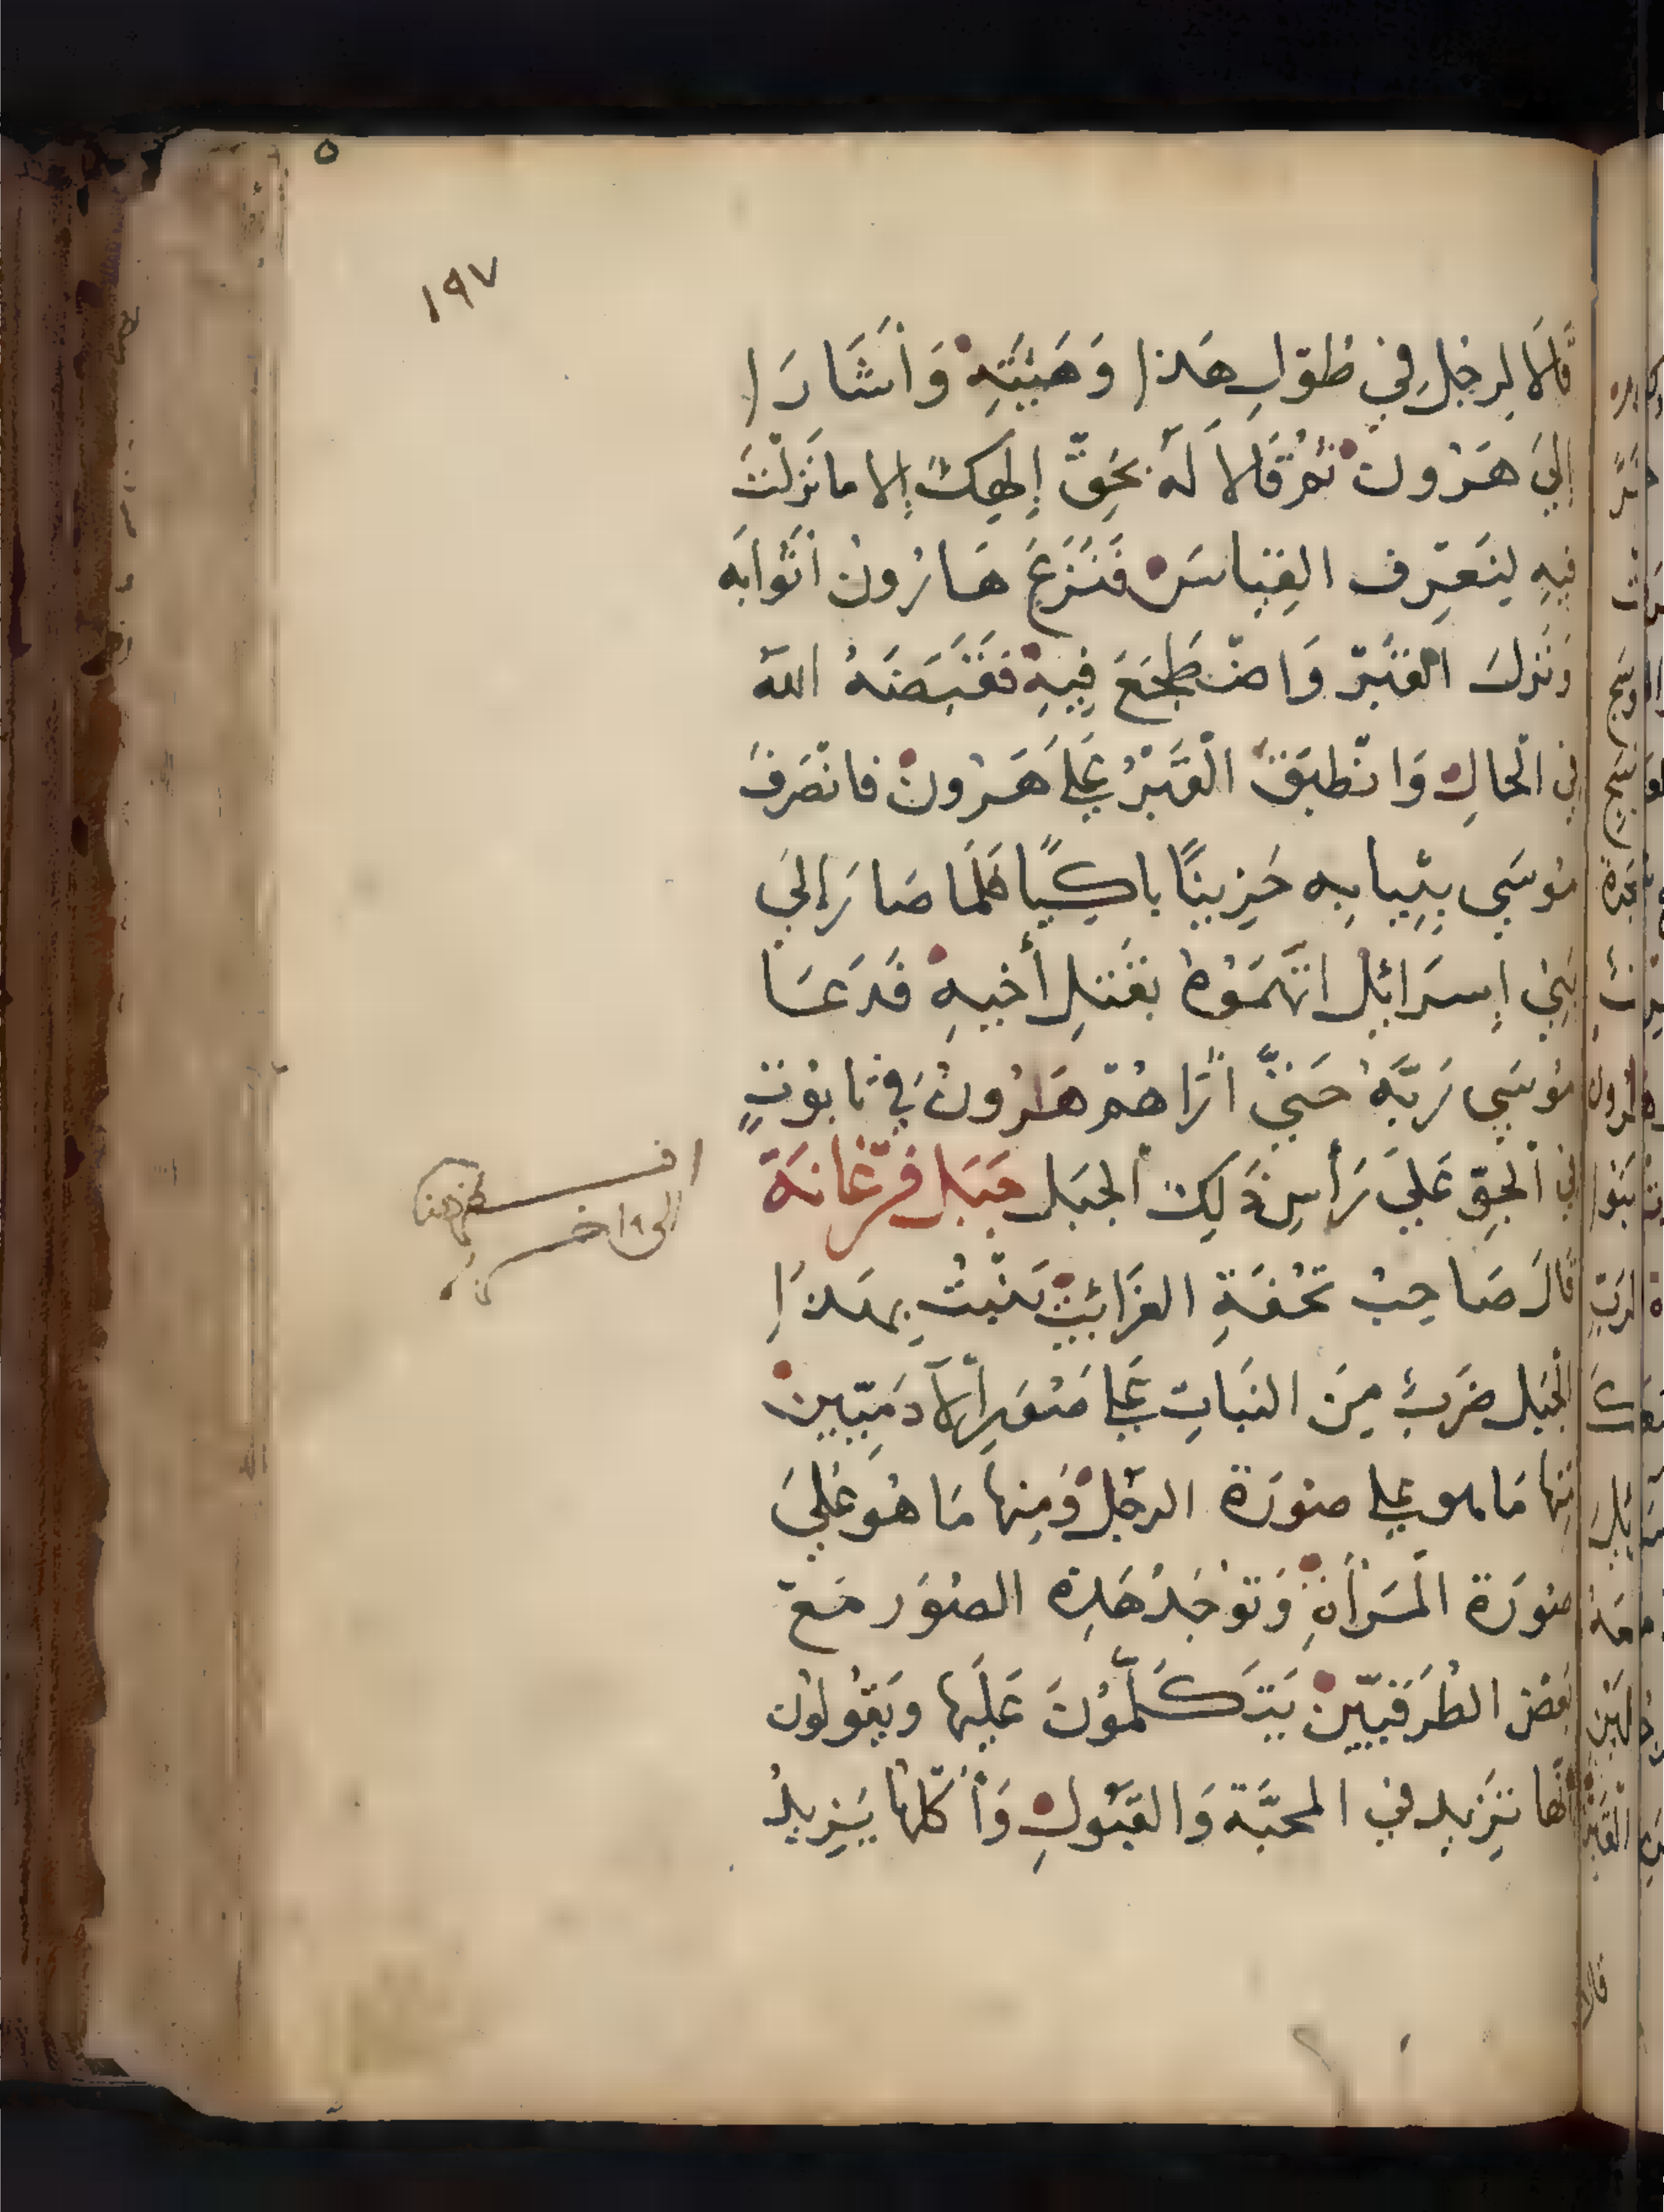 ١٩٧
قَالَا لِرَجُلٍ فِي طُوْلِ هَذا وَهَيْئَتِهِ وَأَشَارَا
إِلَي هَرُون ثُمَّ قَالَا لَهُ بِحَقِّ إِلَهِكَ إِلا مَا نَزَلْتَ
فِيهِ لِنَعْرِف القِيَاسَ فَنَزَعَ هَارُون أَثْوَابَه
وَنَزَلَ القَبْرَ وَاضْطَجَعَ فِيهِ فَقَبَضَهُ اللَّه
فِي الْحَالِ وَانْطَبَقَ الْقَبْرُ عَلَى هَرُونَ فَانْصَرَفَ
مُوسَي بِثِيَابِهِ حَزِينًا بَاكِيًا فَلَمَّا صَارَ إِلَي
بَنِي إِسرَائِيل اتَّهَمُوهُ بِقَتْلِ أَخِيهِ فَدَعَا
مُوسَي رَبَّهُ حَتَّي أَرَاهُمْ هَرُونَ فِي تَابُوْتٍ
فِي الْجَوِّ عَلَي رَأْسِ ذَلِكَ الْجَبَل جَبَل فَرْغَانَة
قَالَ صَاحِبُ تُحْفَةِ الغَرَائِبِ يَنْبُتُ بِهَذَا
الجَبَل ضَرْبٌ مِنَ النَّبَاتِ عَلَى صُوَرِ الآدَمِيِّينَ
مِنْهَا مَا هو عَلى صُورَة الرَّجُلِ وَمِنْهَا مَا هُوَ عَلَي
صُورَة الْمَرْأَةِ وَتُوْجَدُ هَذِهِ الصُّوَر مَعَ
بَعْض الطُّرَقِيِّينَ يَتَكَلَّمُوْنَ عَلَيْهَا وَيَقُولُونَ
أَنَّهَا تَزِيد فِي المَحَبَّة وَالقَبُولِ وَأَكْلُهَا يَزِيدُ